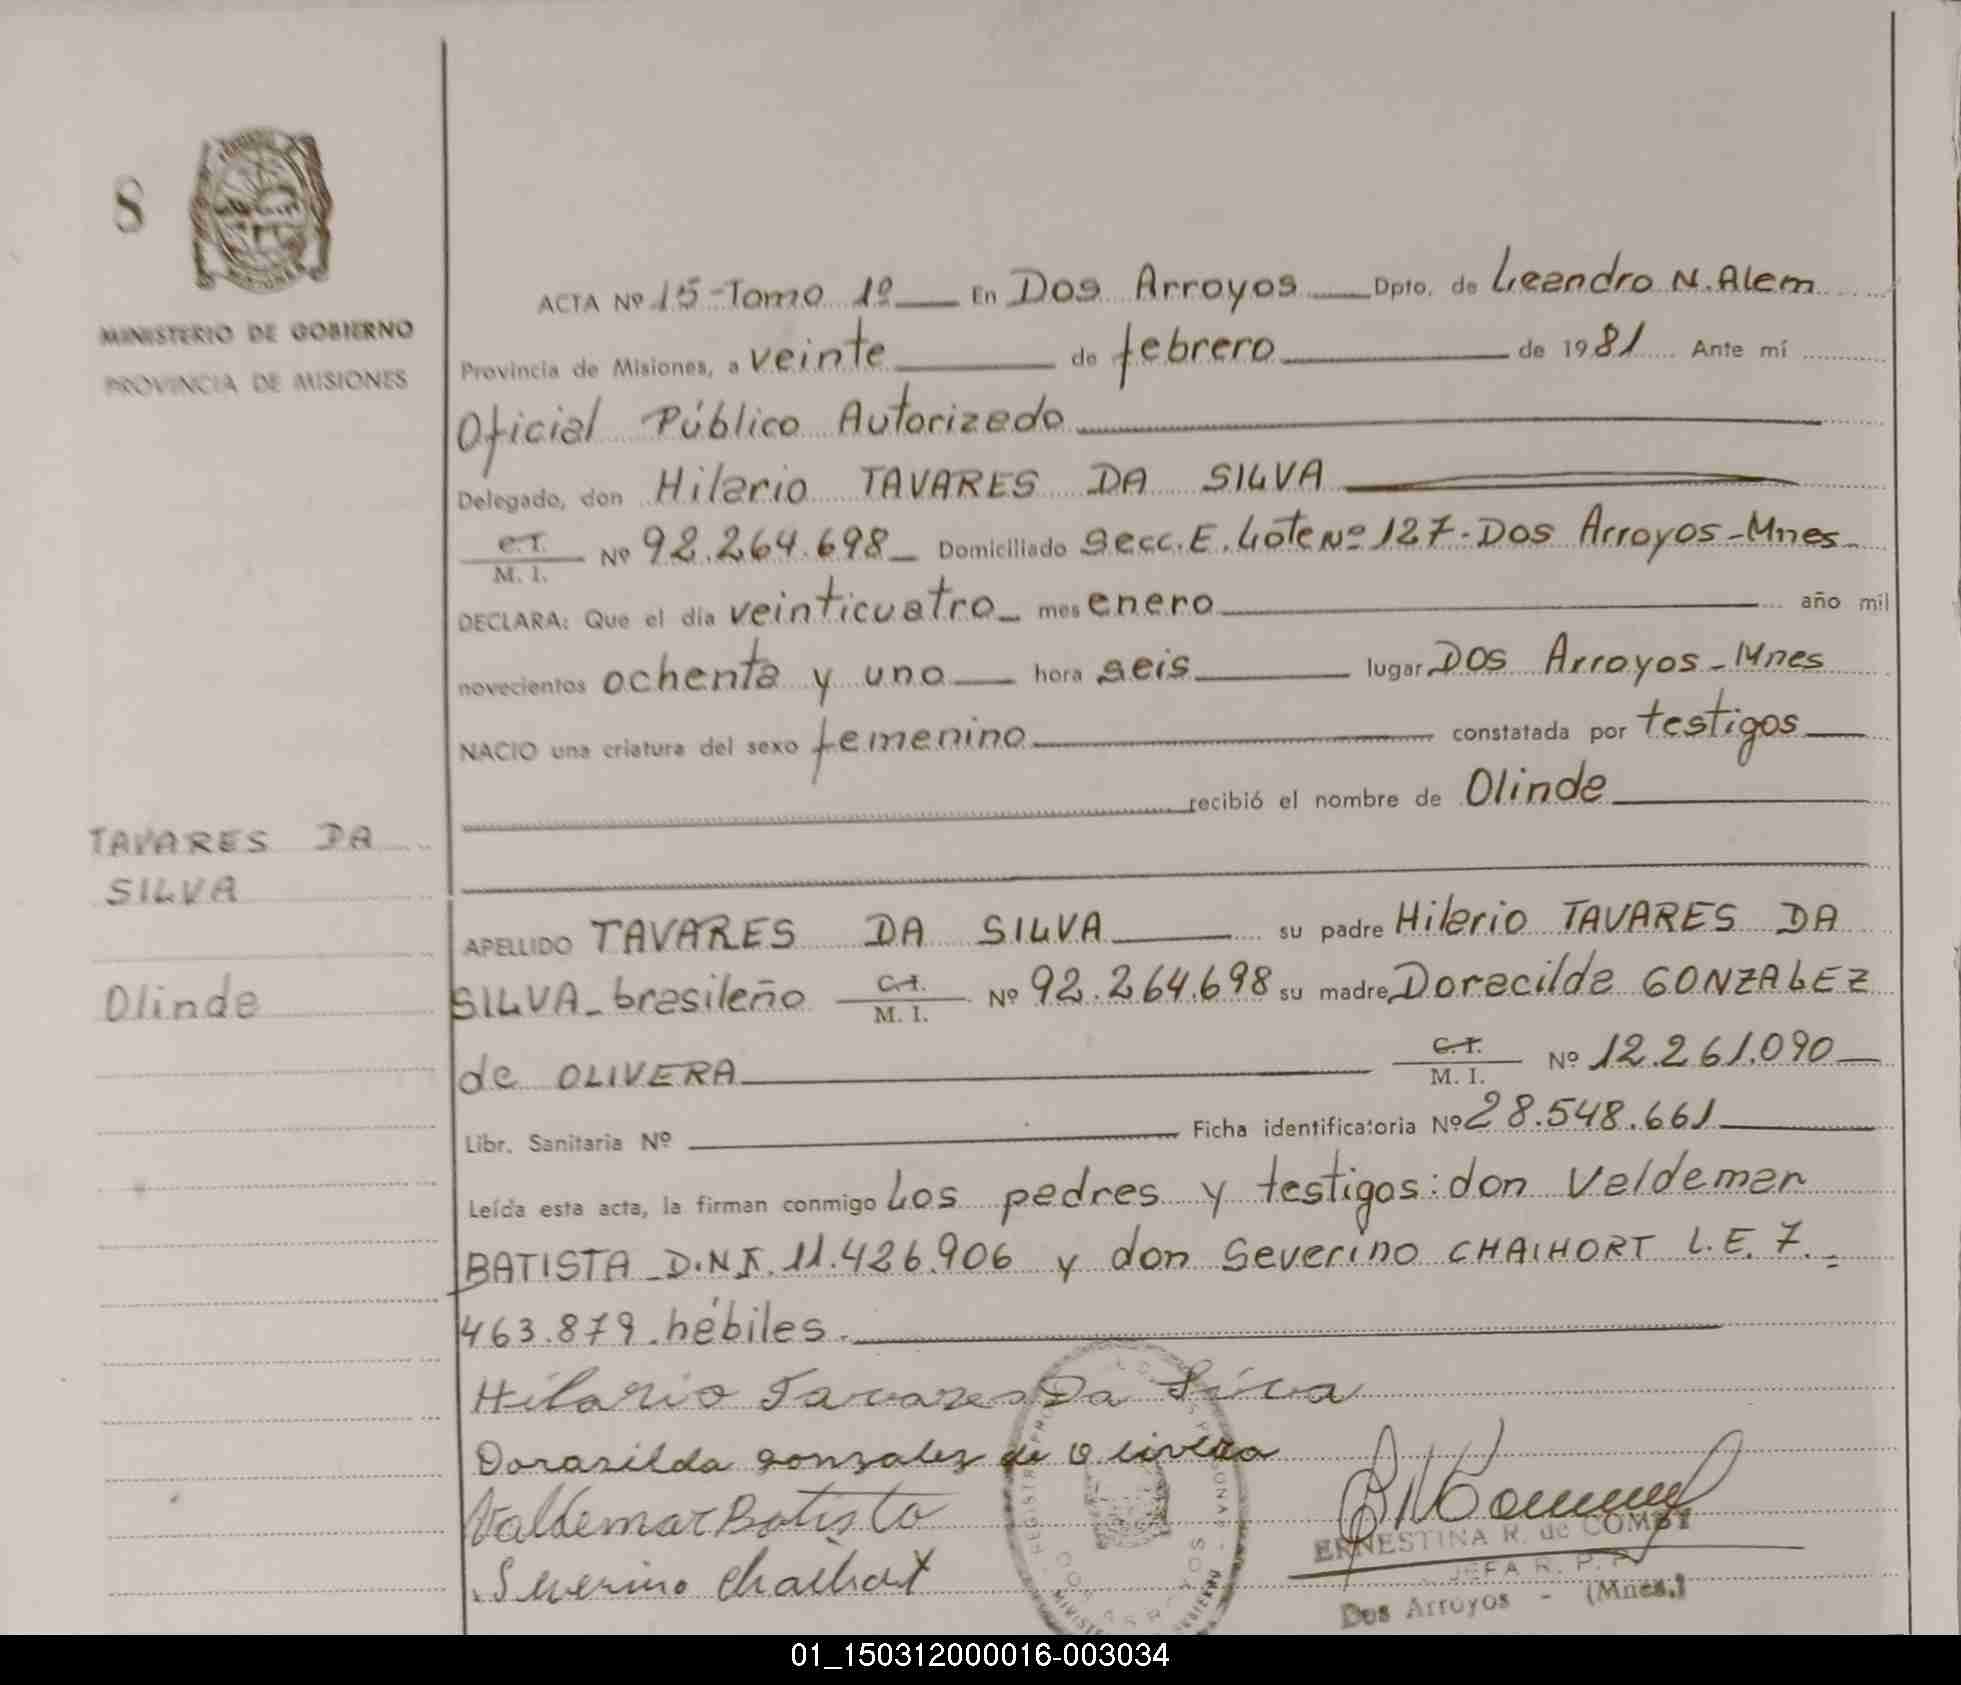 S
MINISTERIO DE GOBIERNO
PROVINCIA DE MISIONES
ACTA Nº 15-Tomo 1º En Dos Arroyos Dpto. de Leandro N. Alem
Provincia de Misiones, a veinte de febrero de 1981 Ante mí
Oficial Público Autorizado
Delegado, don Hilario TAVARES DA SILVA
C.I. / M. I. Nº 92.264.698 Domiciliado Secc. E. Lote Nº 127-Dos Arroyos-Mnes
DECLARA: Que el día veinticuatro mes enero año mil
novecientos ochenta y uno hora seis lugar Dos Arroyos-Mnes
NACIO una criatura del sexo femenino constatada por testigos
recibió el nombre de Olinda
TAVARES DA
SILVA
Olinda
APELLIDO TAVARES DA SILVA su padre Hilario TAVARES DA
SILVA-brasileño C.I. / M. I. Nº 92.264.698 su madre Doracilda GONZALEZ
de OLIVERA C.I. / M. I. Nº 12.261.090
Libr. Sanitaria Nº Ficha identificatoria Nº 28.548.661
Leída esta acta, la firman conmigo Los padres y testigos: don Valdemar
BATISTA D.N.I. 11.426.906 y don Severino CHAIHORT L.E. 7.
463.879. hábiles.
Hilario Tavares Da Silva
Dorasilda gonzalez de Olivera
Valdemar Batista
Severino Chaihort
ERNESTINA R. de COMBY
JEFA R. P. P.
Dos Arroyos - (Mnes.)
DOS ARROYOS
01_150312000016-003034